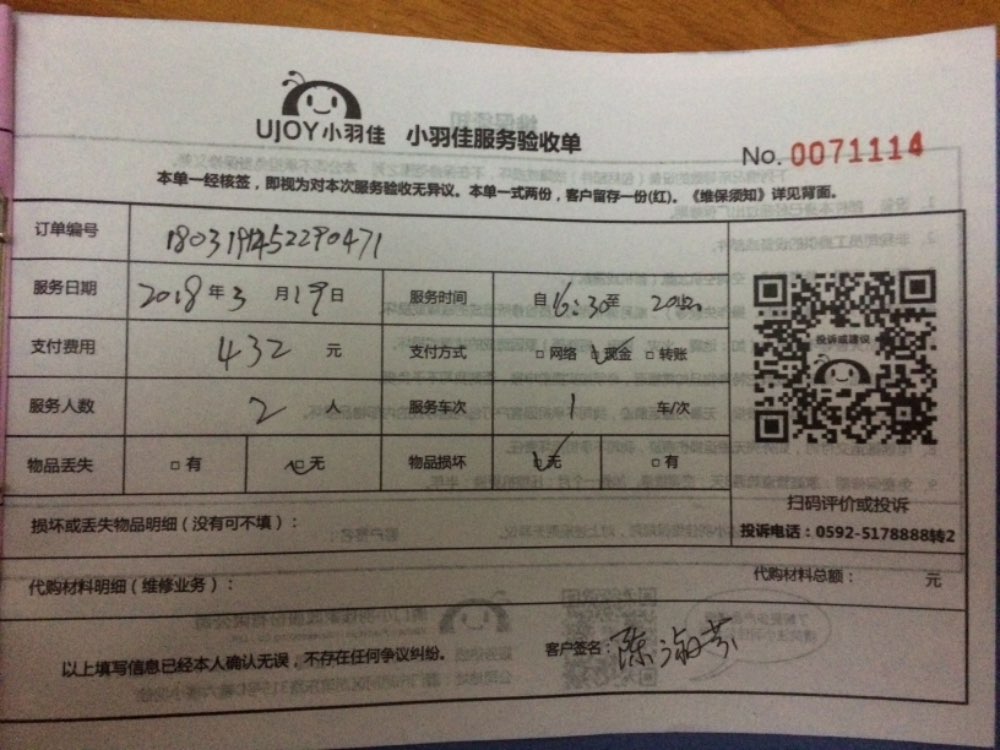 UJOY小羽佳 小羽佳服务验收单
No. 0071114
本单一经核签，即视为对本次服务验收无异议。本单一式两份，客户留存一份(红)。《维保须知》详见背面。
订单编号 180319452290471
服务日期 2018年3月19日 服务时间 自16:30至
支付费用 432 元 支付方式 □网络 □现金 □转账
服务人数 2 人 服务车次 1 车/次
物品丢失 □有 □无 物品损坏 □无 □有
投诉或建议
扫码评价或投诉
投诉电话：0592-5178888转2
损坏或丢失物品明细（没有可不填）：
代购材料明细（维修业务）： 代购材料总额： 元
以上填写信息已经本人确认无误，不存在任何争议纠纷。 客户签名：陈淑芬